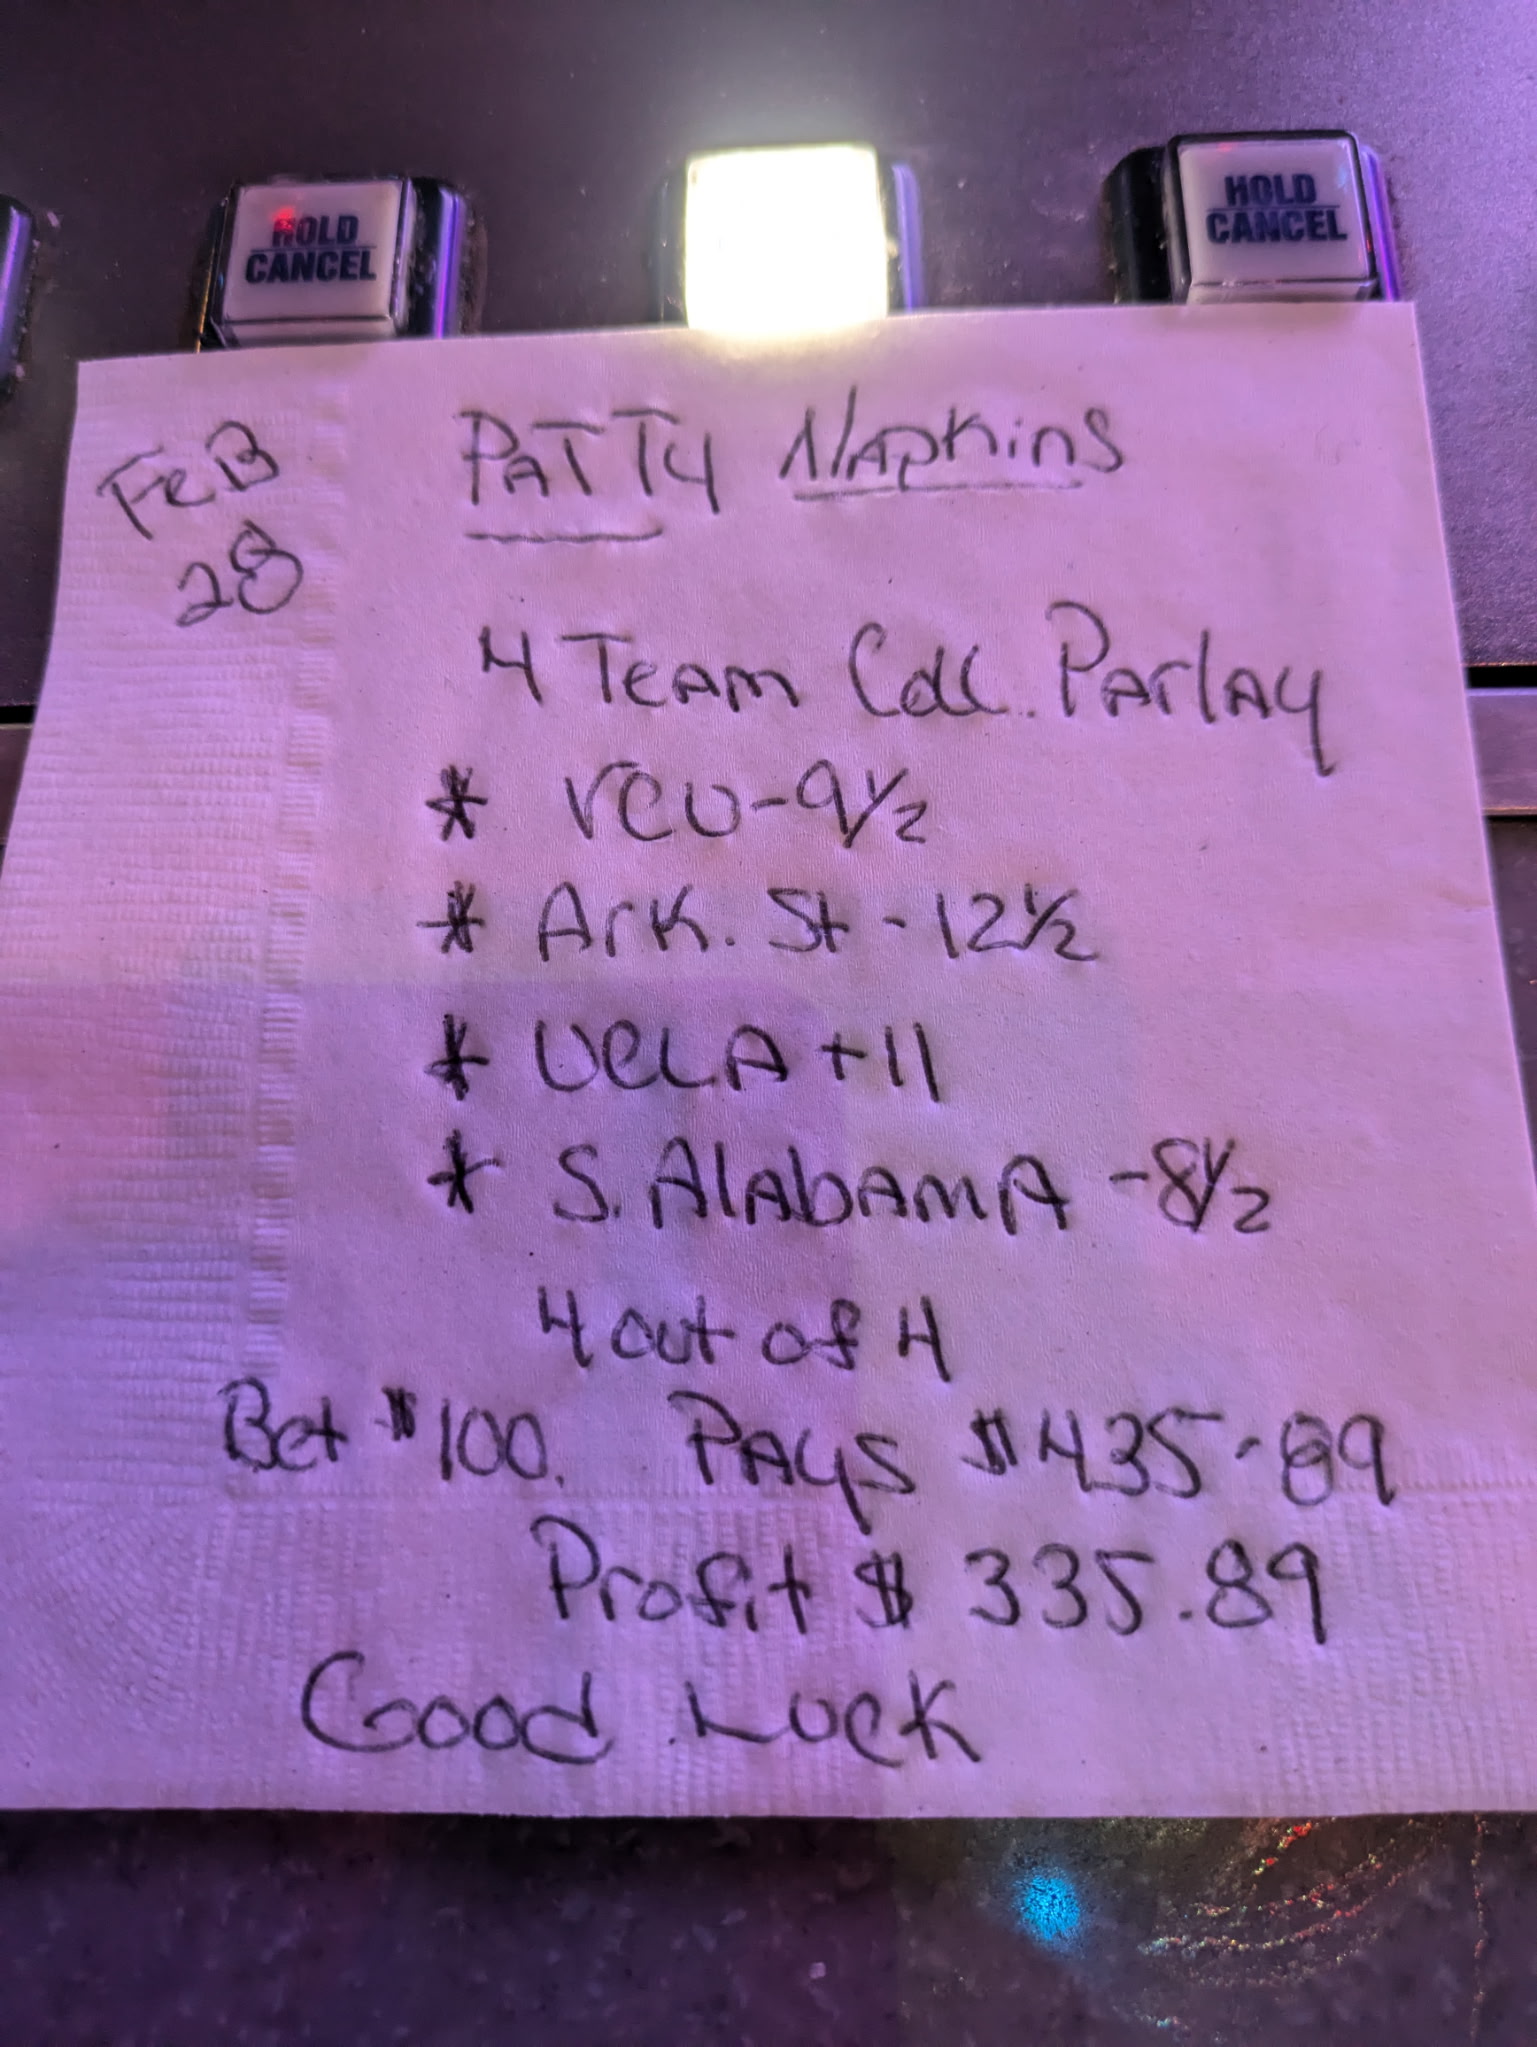 HOLD
CANCEL
HOLD
CANCEL
FeB
28
PATTY NApkins
4 TeAm Coll. PArlAy
* VCU-9½
* Ark. St - 12½
* UCLA +11
* S. AlAbAmA -8½
4 out of 4
Bet $100. PAys $435.89
Profit $ 335.89
Good Luck